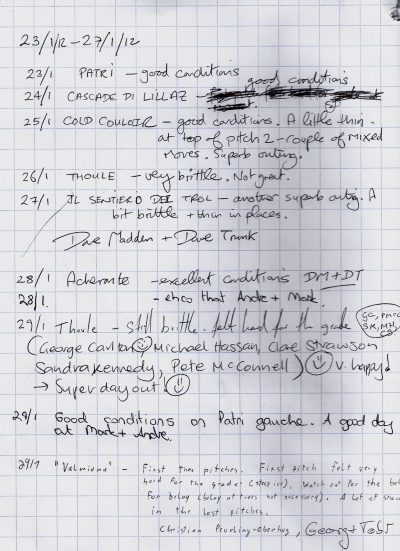 23/1/12 - 27/1/12
23/1 PATRI - good conditions
24/1 CASCADE DI LILLAZ - good conditions
25/1 COLD COULOIR - good conditions. A little thin
at top of pitch 2 - couple of MIXED
Moves. Superb outing.
26/1 THOULE - very brittle. Not great.
27/1 IL SENTIERO DEL TROL - another superb outing. A
bit brittle + thin in places.
Dave Madden + Dave Trunk
28/1 Acherante - excellent conditions DM+DT
28/1. - echo that Andre + Mark.
29/1 Thoule - Still brittle. felt hard for the grade
(George Carlton, Michael Hassan, Clare Strawson
Sandra Kennedy, Pete McConnell) V. happy!
→ Super day out!
29/1 Good conditions on Patri gauche. A good day
out Mark + Andre.
29/1 "Valmiana" - First three pitches. First pitch felt very
hard for the grade (steep ice), Watch out for the
for belay (belay at trees not necessary). A lot of snow
in the last pitches.
Christian, Georg